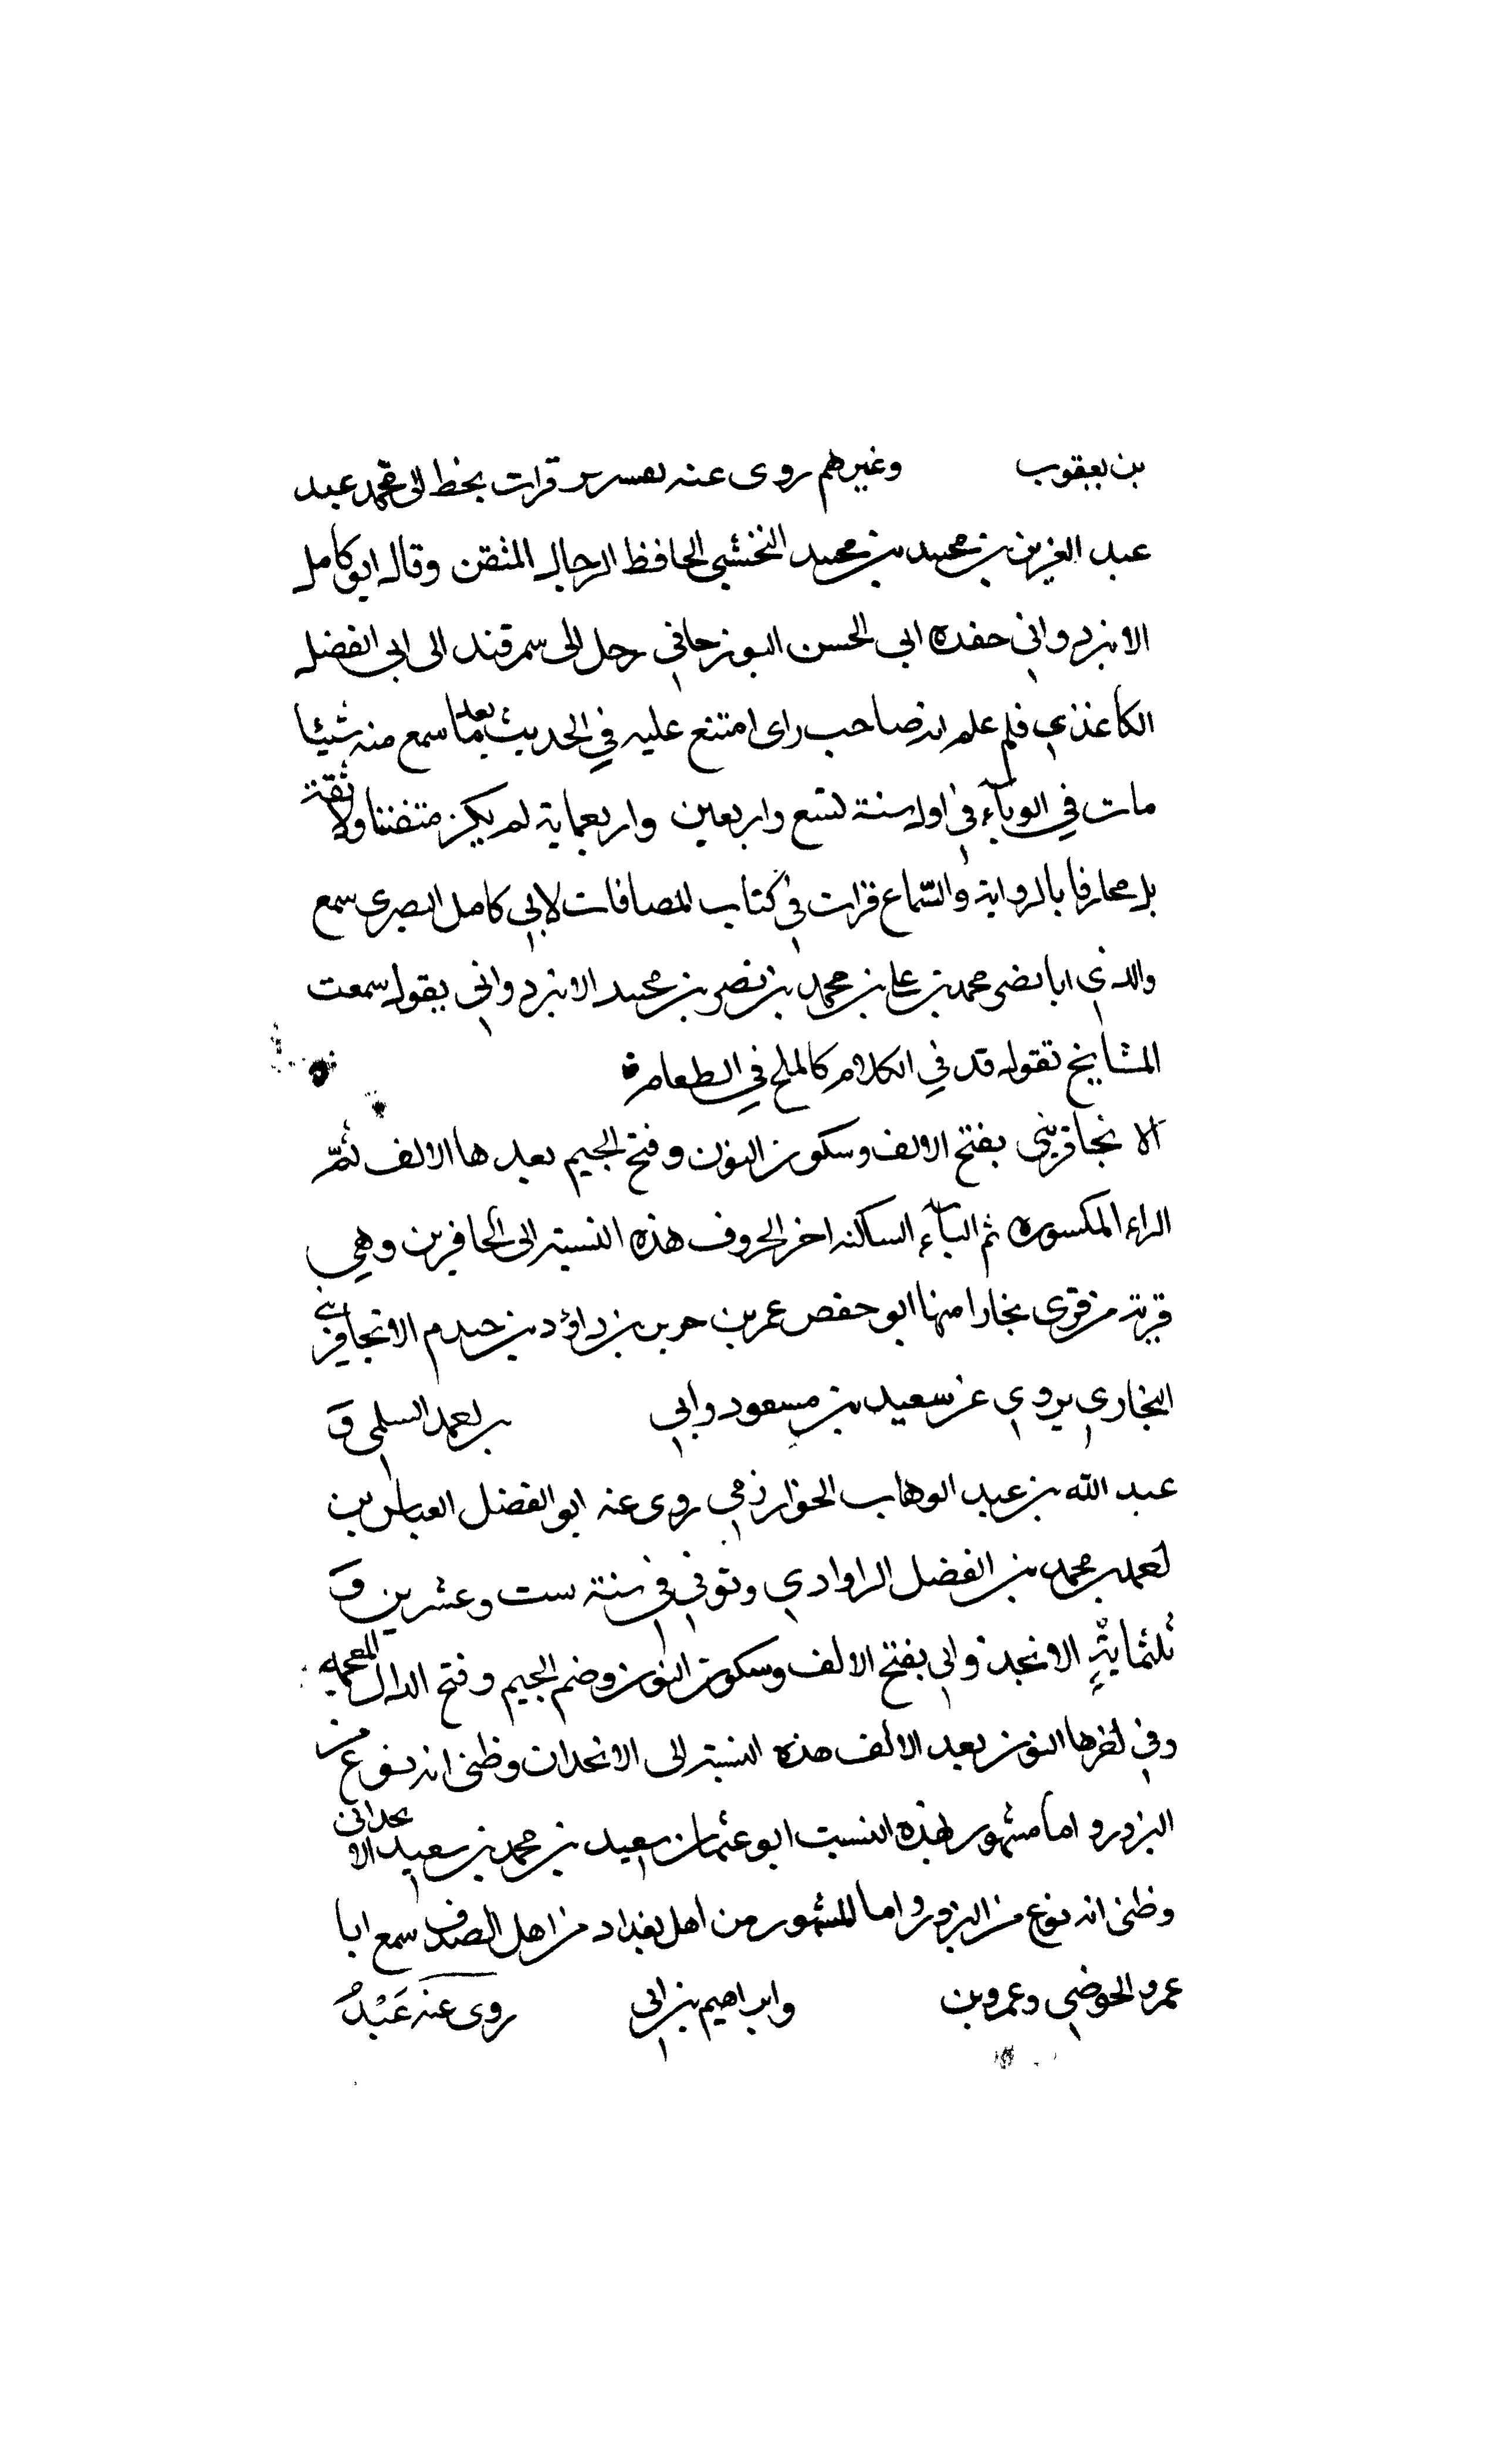 بن يعقوب وغيرهم روى عنه قرات بخط ابى محمد عبد
عبد العزيز بن محمد بن محمد النخشبى الحافظ الرحال المتقن وقال ابو كامل
الانبردوانى حفده ابى الحسن البوزجانى رحل الى سمرقند الى ابى الفضل
الكاغذى فلم علم انه صاحب راى امتنع عليه في الحديث بعد ما سمع منه شيئا
مات في الوبآء في اول سنة تسع واربعين واربعماية لم يكن متفننا ولا ثقة
بل مجازفا بالرواية والسماع قرات في كتاب المضافات لابى كامل البصرى سمع
والدى ابا نصر محمد بن على بن محمد بن نصر بن محمد الانبردوانى يقول سمعت
المشايخ تقول قد في الكلام كالملح في الطعام
الانجافرينى بفتح الالف وسكون النون وفتح الجيم بعدها الالف ثم
الراء المكسوره ثم اليآء الساكنه اخر الحروف هذه النسبة الى انجافرين وهى
قرية من قرى بخارا منها ابو حفص عمر بن حرير بن داؤد بن حيدم الانجافرينى
البخارى يروى عن سعيد بن مسعود وابى السلمى و
عبد الله بن عبد الوهاب الخوارزمى روى عنه ابو الفضل العباس بن
محمد بن الفضل الراوادى وتوفى في سنة ست وعشرين و
ثلثماية الانجذوانى بفتح الالف وسكون النون وضم الجيم وفتح الدال المعجمه
وفى اخرها النون بعد الالف هذه النسبة الى الانجدان وظنى انه نوع من
البزور واما مشهور بهذه النسبت ابو عثمان سعيد بن محمد بن سعيد الانجدانى
وظنى انه نوع من البزور واما المشهور من اهل بغداد من اهل الصدق سمع ابا
عمرو الحوضى وعمرو بن وابراهيم بن ابى روى عنه عَبْدُ